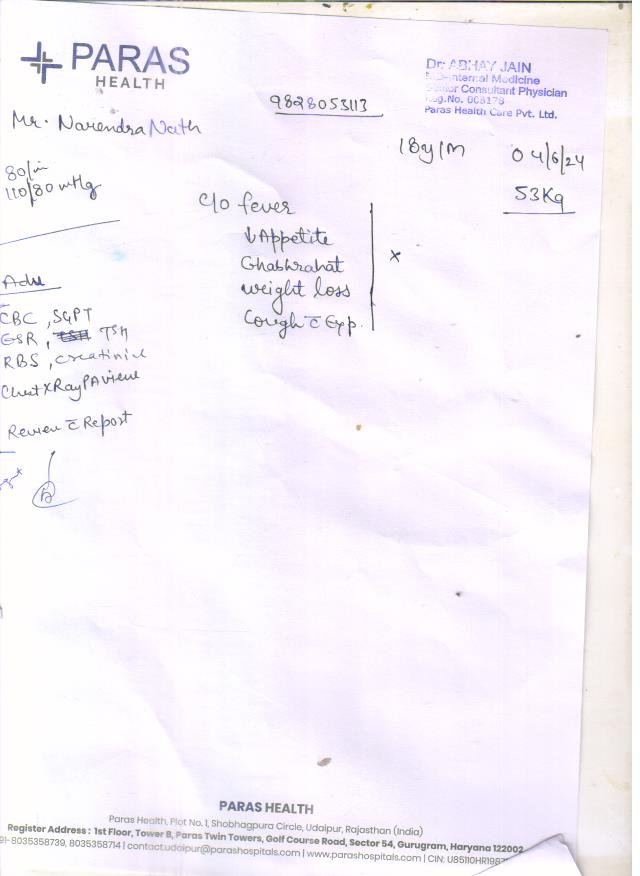 PARAS
HEALTH
Dr. ABHAY JAIN
Internal Medicine
Senior Consultant Physician
Reg.No. 008178
Paras Health Care Pvt. Ltd.
9828053113
Mr. Narendra Nath
18y/M 04/6/24
53Kg
80/m
110/80 mmHg
c/o fever
↓Appetite
Ghabhrahat
weight loss
Cough c̄ Exp.
x
Adv
CBC, SGPT
ESR, TSH
RBS, creatinine
Chest X Ray PA view
Review c̄ Report
PARAS HEALTH
Paras Health, Plot No. 1, Shobhagpura Circle, Udaipur, Rajasthan (India)
Register Address : 1st Floor, Tower B, Paras Twin Towers, Golf Course Road, Sector 54, Gurugram, Haryana 122002
91-8035358739, 8035358714 | contact.udaipur@parashospitals.com | www.parashospitals.com | CIN: U85110HR198